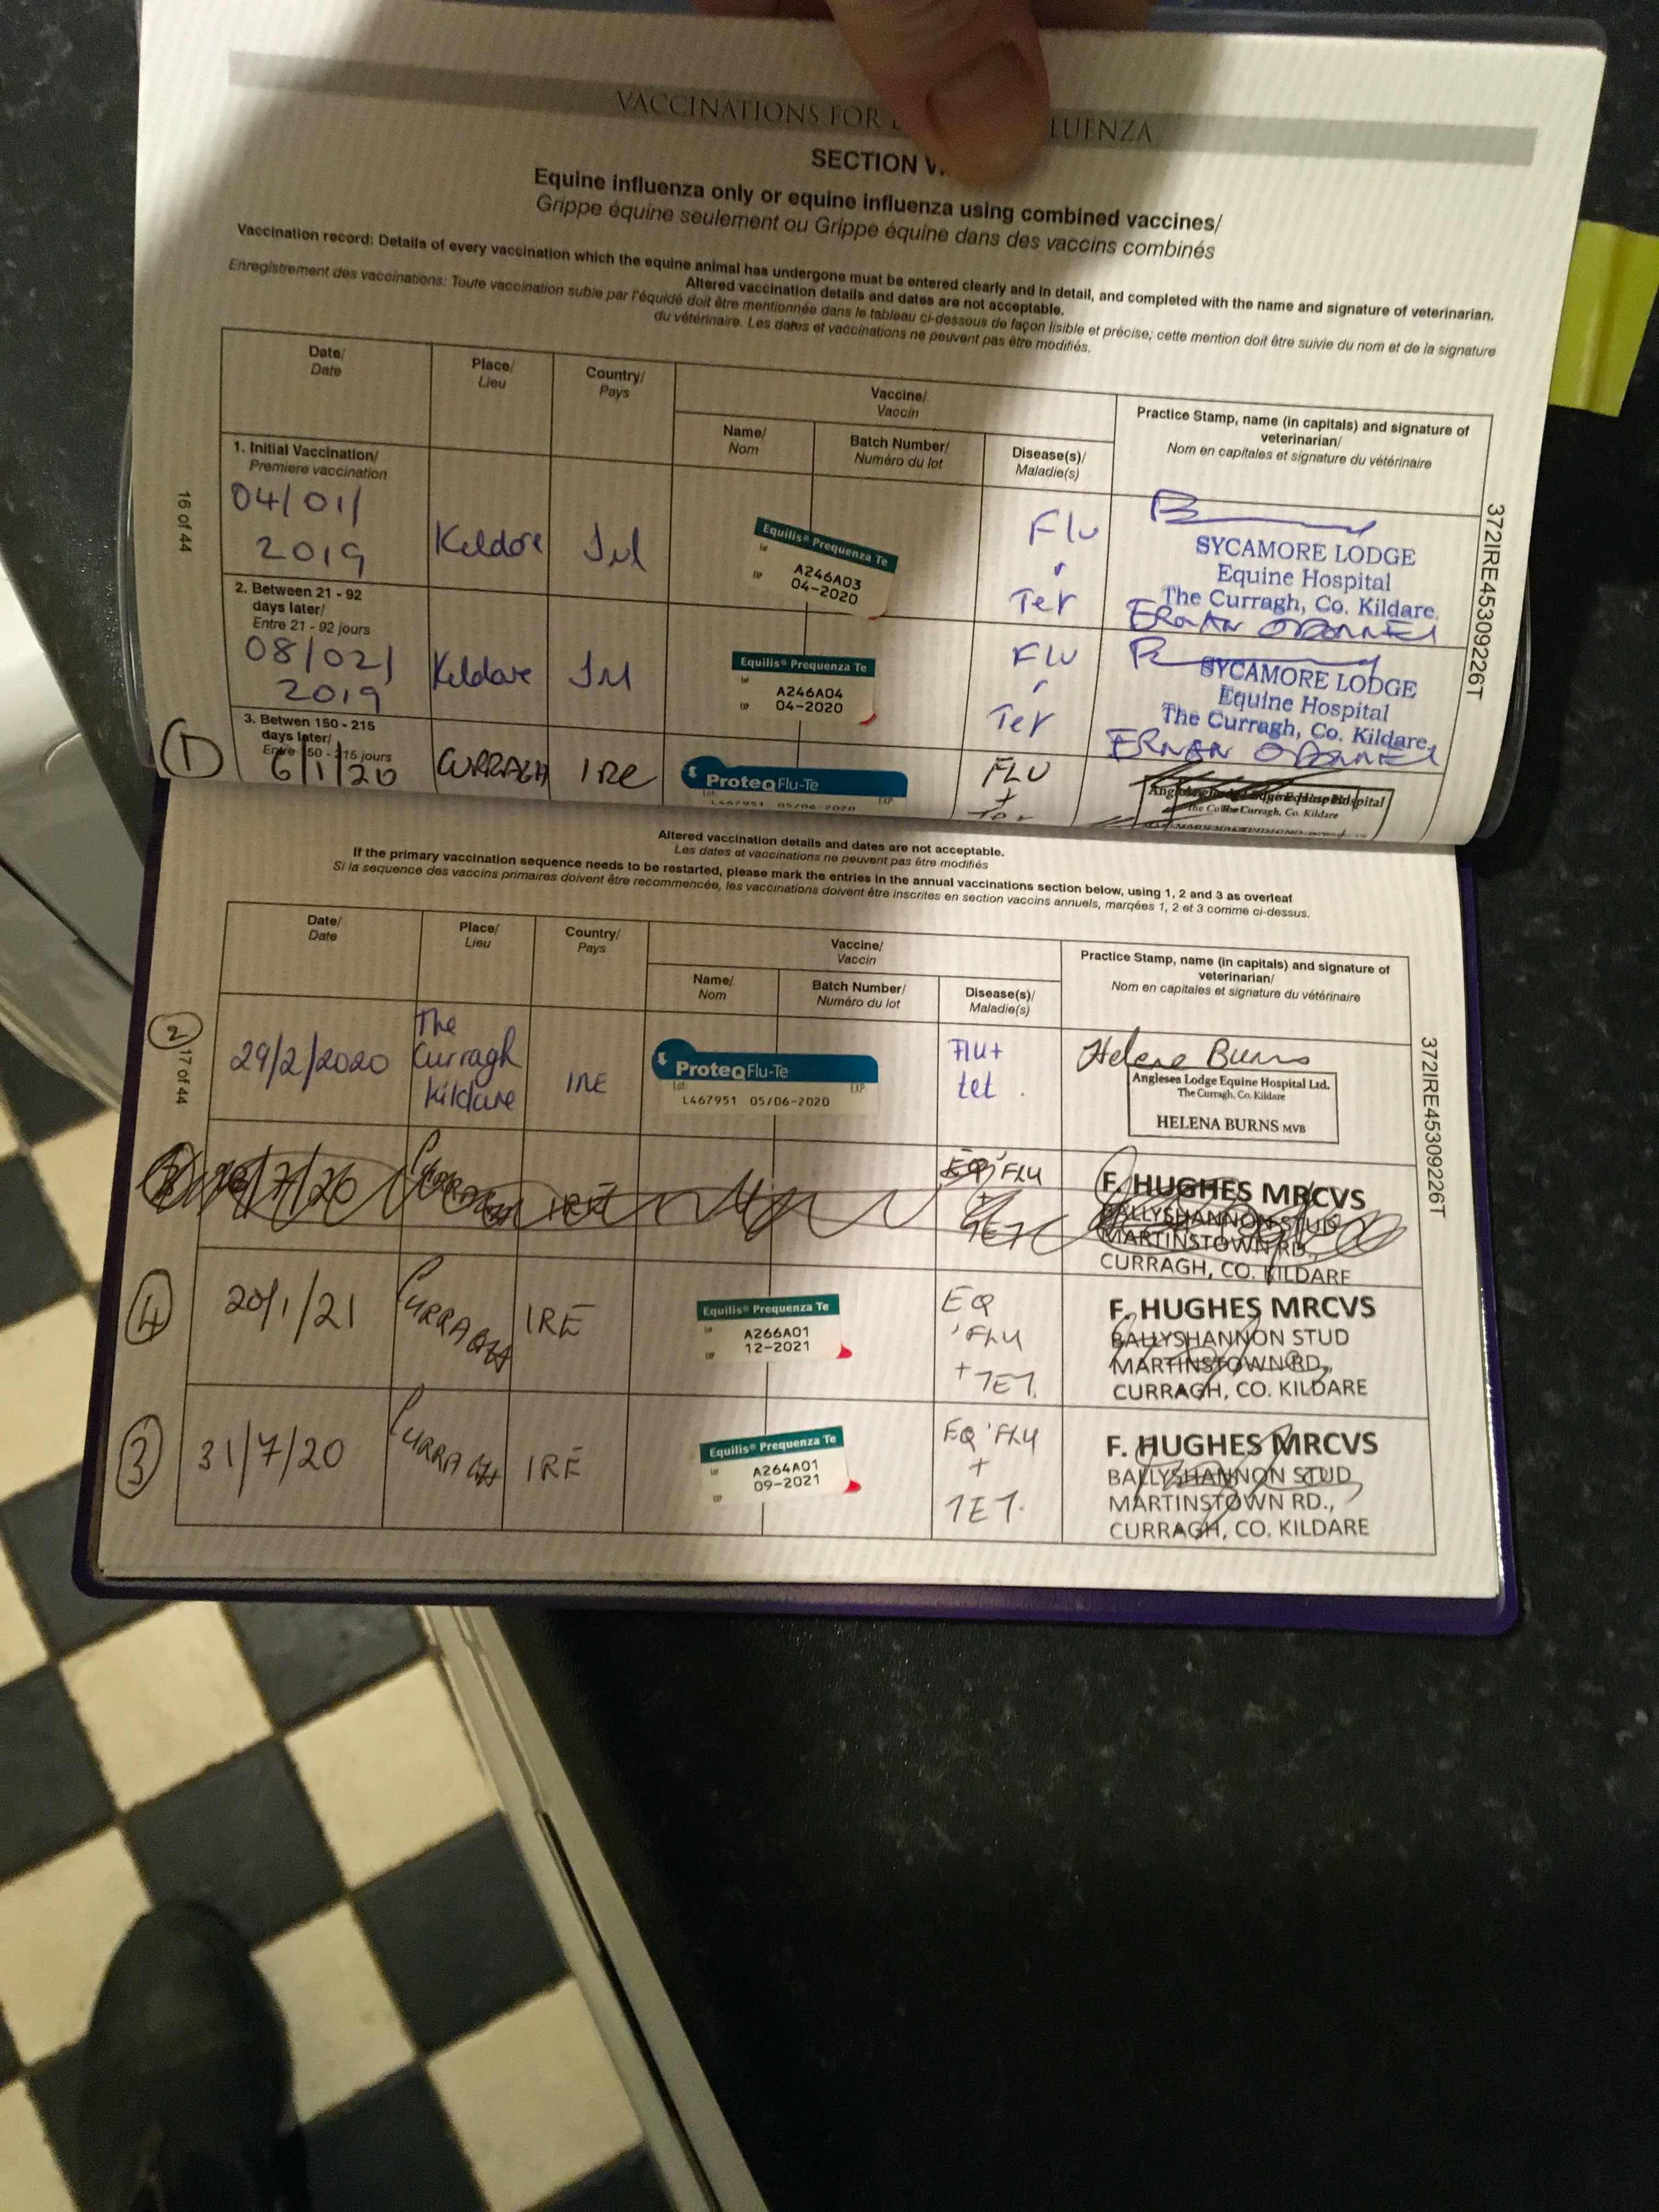 VACCINATIONS FOR LUENZA
SECTION
Equine influenza only or equine influenza using combined vaccines/
Grippe équine seulement ou Grippe équine dans des vaccins combinés
Vaccination record: Details of every vaccination which the equine animal has undergone must be entered clearly and in detail, and completed with the name and signature of veterinarian.
Altered vaccination details and dates are not acceptable.
Enregistrement des vaccinations: Toute vaccination subie par l'équidé doit être mentionnée dans le tableau ci-dessous de façon lisible et précise; cette mention doit être suivie du nom et de la signature
du vétérinaire. Les dates et vaccinations ne peuvent pas être modifiés.
Date/
Date
Place/
Lieu
Country/
Pays
Vaccine/
Vaccin
Name/
Nom
Batch Number/
Numéro du lot
Disease(s)/
Maladie(s)
Practice Stamp, name (in capitals) and signature of
veterinarian/
Nom en capitales et signature du vétérinaire
16 of 44
372IRE45309226T
1. Initial Vaccination/
Premiere vaccination
04/01/
2019
Kildare
Irl
Equilis® Prequenza Te
Lot
A246A03
EXP 04-2020
Flu
Tet
SYCAMORE LODGE
Equine Hospital
The Curragh, Co. Kildare.
2. Between 21 - 92
days later/
Entre 21 - 92 jours
08/02/
2019
Kildare
Irl
Equilis® Prequenza Te
Lot
A246A04
EXP 04-2020
Flu
Tet
SYCAMORE LODGE
Equine Hospital
The Curragh, Co. Kildare.
ERNAN ODONNEL
1
3. Betwen 150 - 215
days later/
Entre 150 - 215 jours
6/1/20
CURRAGH
IRE
ProteqFlu-Te
Lot EXP
L467951 05/06 2020
FLU
+
Tet
Hospital
The Curragh, Co. Kildare
Altered vaccination details and dates are not acceptable.
Les dates et vaccinations ne peuvent pas être modifiés
If the primary vaccination sequence needs to be restarted, please mark the entries in the annual vaccinations section below, using 1, 2 and 3 as overleaf
Si la sequence des vaccins primaires doivent être recommencée, les vaccinations doivent être inscrites en section vaccins annuels, marqées 1, 2 et 3 comme ci-dessus.
Date/
Date
Place/
Lieu
Country/
Pays
Vaccine/
Vaccin
Name/
Nom
Batch Number/
Numéro du lot
Disease(s)/
Maladie(s)
Practice Stamp, name (in capitals) and signature of
veterinarian/
Nom en capitales et signature du vétérinaire
17 of 44
372IRE45309226T
2
29/2/2020
The
Curragh
Kildare
IRE
ProteqFlu-Te
Lot EXP
L467951 05/06-2020
Flu+
tet.
Helena Burns
Anglesea Lodge Equine Hospital Ltd.
The Curragh, Co. Kildare
HELENA BURNS MVB
/7/20
IRE
EQ 'FLU
+
TET
F. HUGHES MRCVS
BALLYSHANNON STUD
MARTINSTOWN RD.,
CURRAGH, CO. KILDARE
4
20/1/21
CURRAGH
IRE
Equilis® Prequenza Te
Lot
A266A01
EXP 12-2021
EQ
'FLU
+ TET.
F. HUGHES MRCVS
BALLYSHANNON STUD
MARTINSTOWN RD.,
CURRAGH, CO. KILDARE
3
31/7/20
CURRAGH
IRE
Equilis® Prequenza Te
Lot
A264A01
09-2021
EXP
EQ 'FLU
+
TET.
F. HUGHES MRCVS
BALLYSHANNON STUD
MARTINSTOWN RD.,
CURRAGH, CO. KILDARE